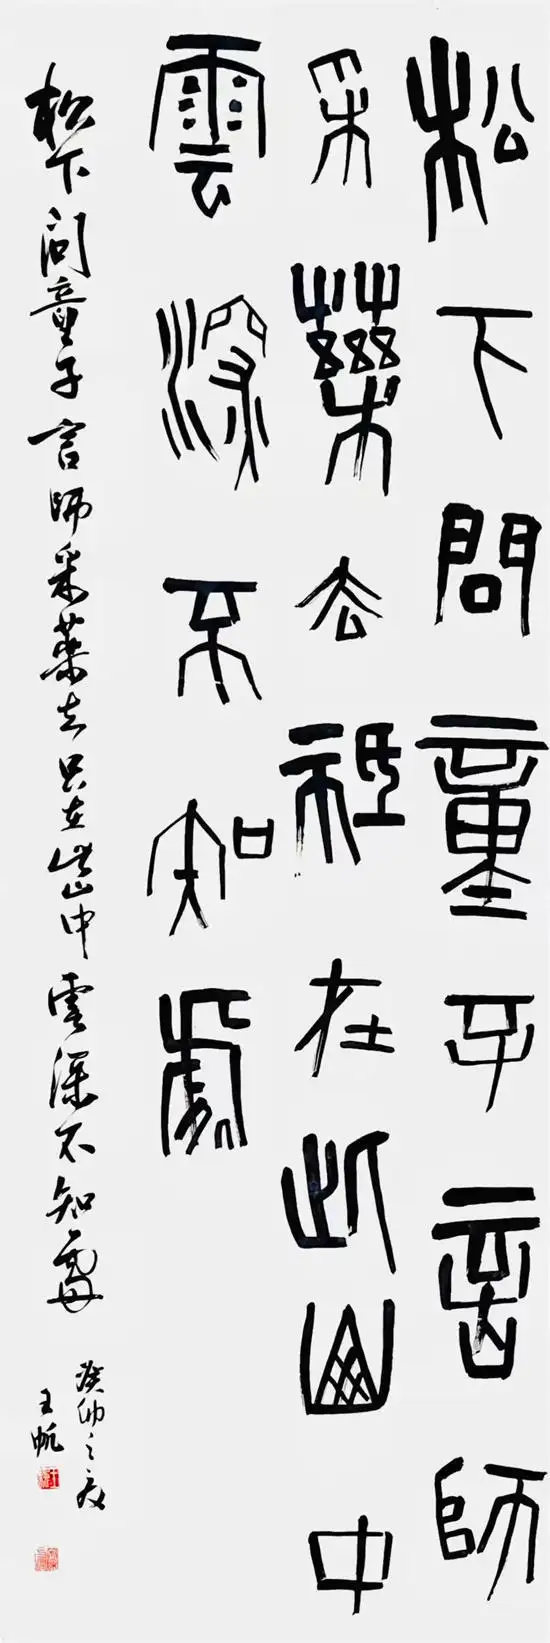 松下問童子言師
采藥去祇在此山中
雲深不知處
松下问童子言師采薬去只在此山中雲深不知處
癸卯之夏
王帆